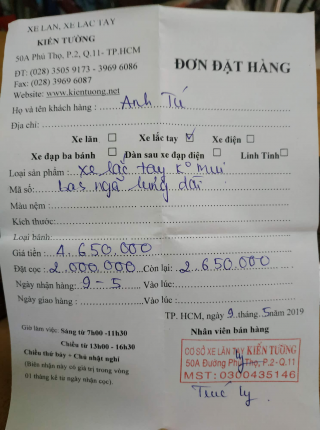 XE LĂN, XE LẮC TAY
KIẾN TƯỜNG
50A Phú Thọ, P.2, Q.11- TP.HCM
ĐT: (028) 3505 9173 - 3969 6086
Fax: (028) 3969 6087
Website: www.kientuong.net
ĐƠN ĐẶT HÀNG
Họ và tên khách hàng : Anh Tú
Địa chỉ:
Xe lăn ☐ Xe lắc tay ☑ Xe điện ☐
Xe đạp ba bánh ☐ Dàn sau xe đạp điện ☐ Linh Tinh ☐
Loại sản phẩm : xe lắc tay K° mui
Mã số: bas ngã lưng dài
Màu nệm :
Kích thước:
Loại bánh:
Giá tiền : 4.650.000
Đặt cọc : 2.000.000 Còn lại: 2.650.000
Ngày nhận hàng: 9-5 Vào lúc:
Ngày giao hàng : Vào lúc:
TP. HCM, ngày 9 tháng 5 năm 2019
Giờ làm việc: Sáng từ 7h00 -11h30
Chiều từ 13h00 - 16h30
Chiều thứ bảy + Chủ nhật nghỉ
(Biên nhận này có giá trị trong vòng
01 tháng kể từ ngày nhận cọc).
Nhân viên bán hàng
CƠ SỞ XE LĂN TAY KIẾN TƯỜNG
50A Đường Phú Thọ, P.2-Q.11
MST: 0300435146
Trúc Ly